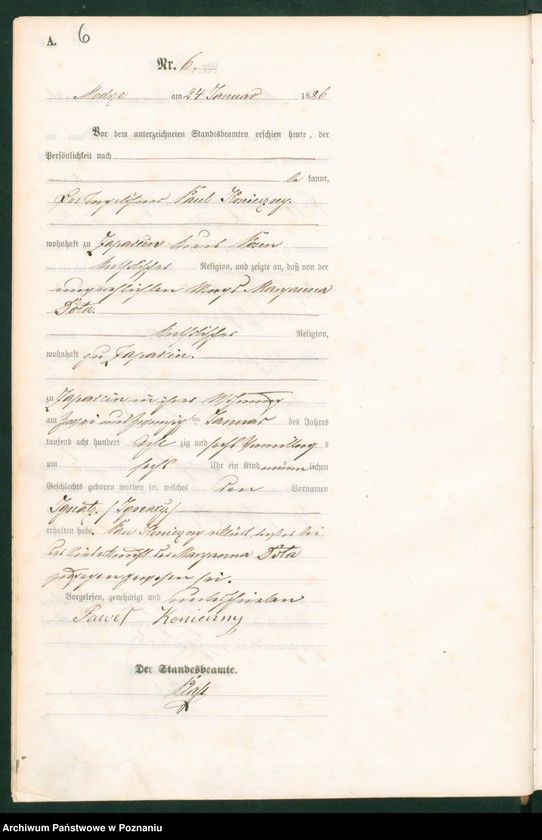 A. 6
Nr. 6.
Modze am 24 Januar 1886
Vor dem unterzeichneten Standesbeamten erschien heute, der
Persönlichkeit nach
be kannt,
der Paul Konieczny.
wohnhaft zu Posen
katholischer Religion, und zeigte an, daß von der
unverehelichten Magd Maryanna
Pota.
katholischer Religion,
wohnhaft zu
zu in ihrer Wohnung
am zwei und zwanzigsten Januar des Jahres
tausend acht hundert acht zig und sechs Vormittags
um sechs Uhr ein Kind männlichen
Geschlechts geboren worden sei, welches den Vornamen
Ignatz (Ignacy)
erhalten habe. Paul Konieczny erklärt, daß er bei
der Niederkunft der Maryanna Pota
zugegen gewesen sei.
Vorgelesen, genehmigt und unterschrieben
Paweł Konieczny
Der Standesbeamte.
Archiwum Państwowe w Poznaniu